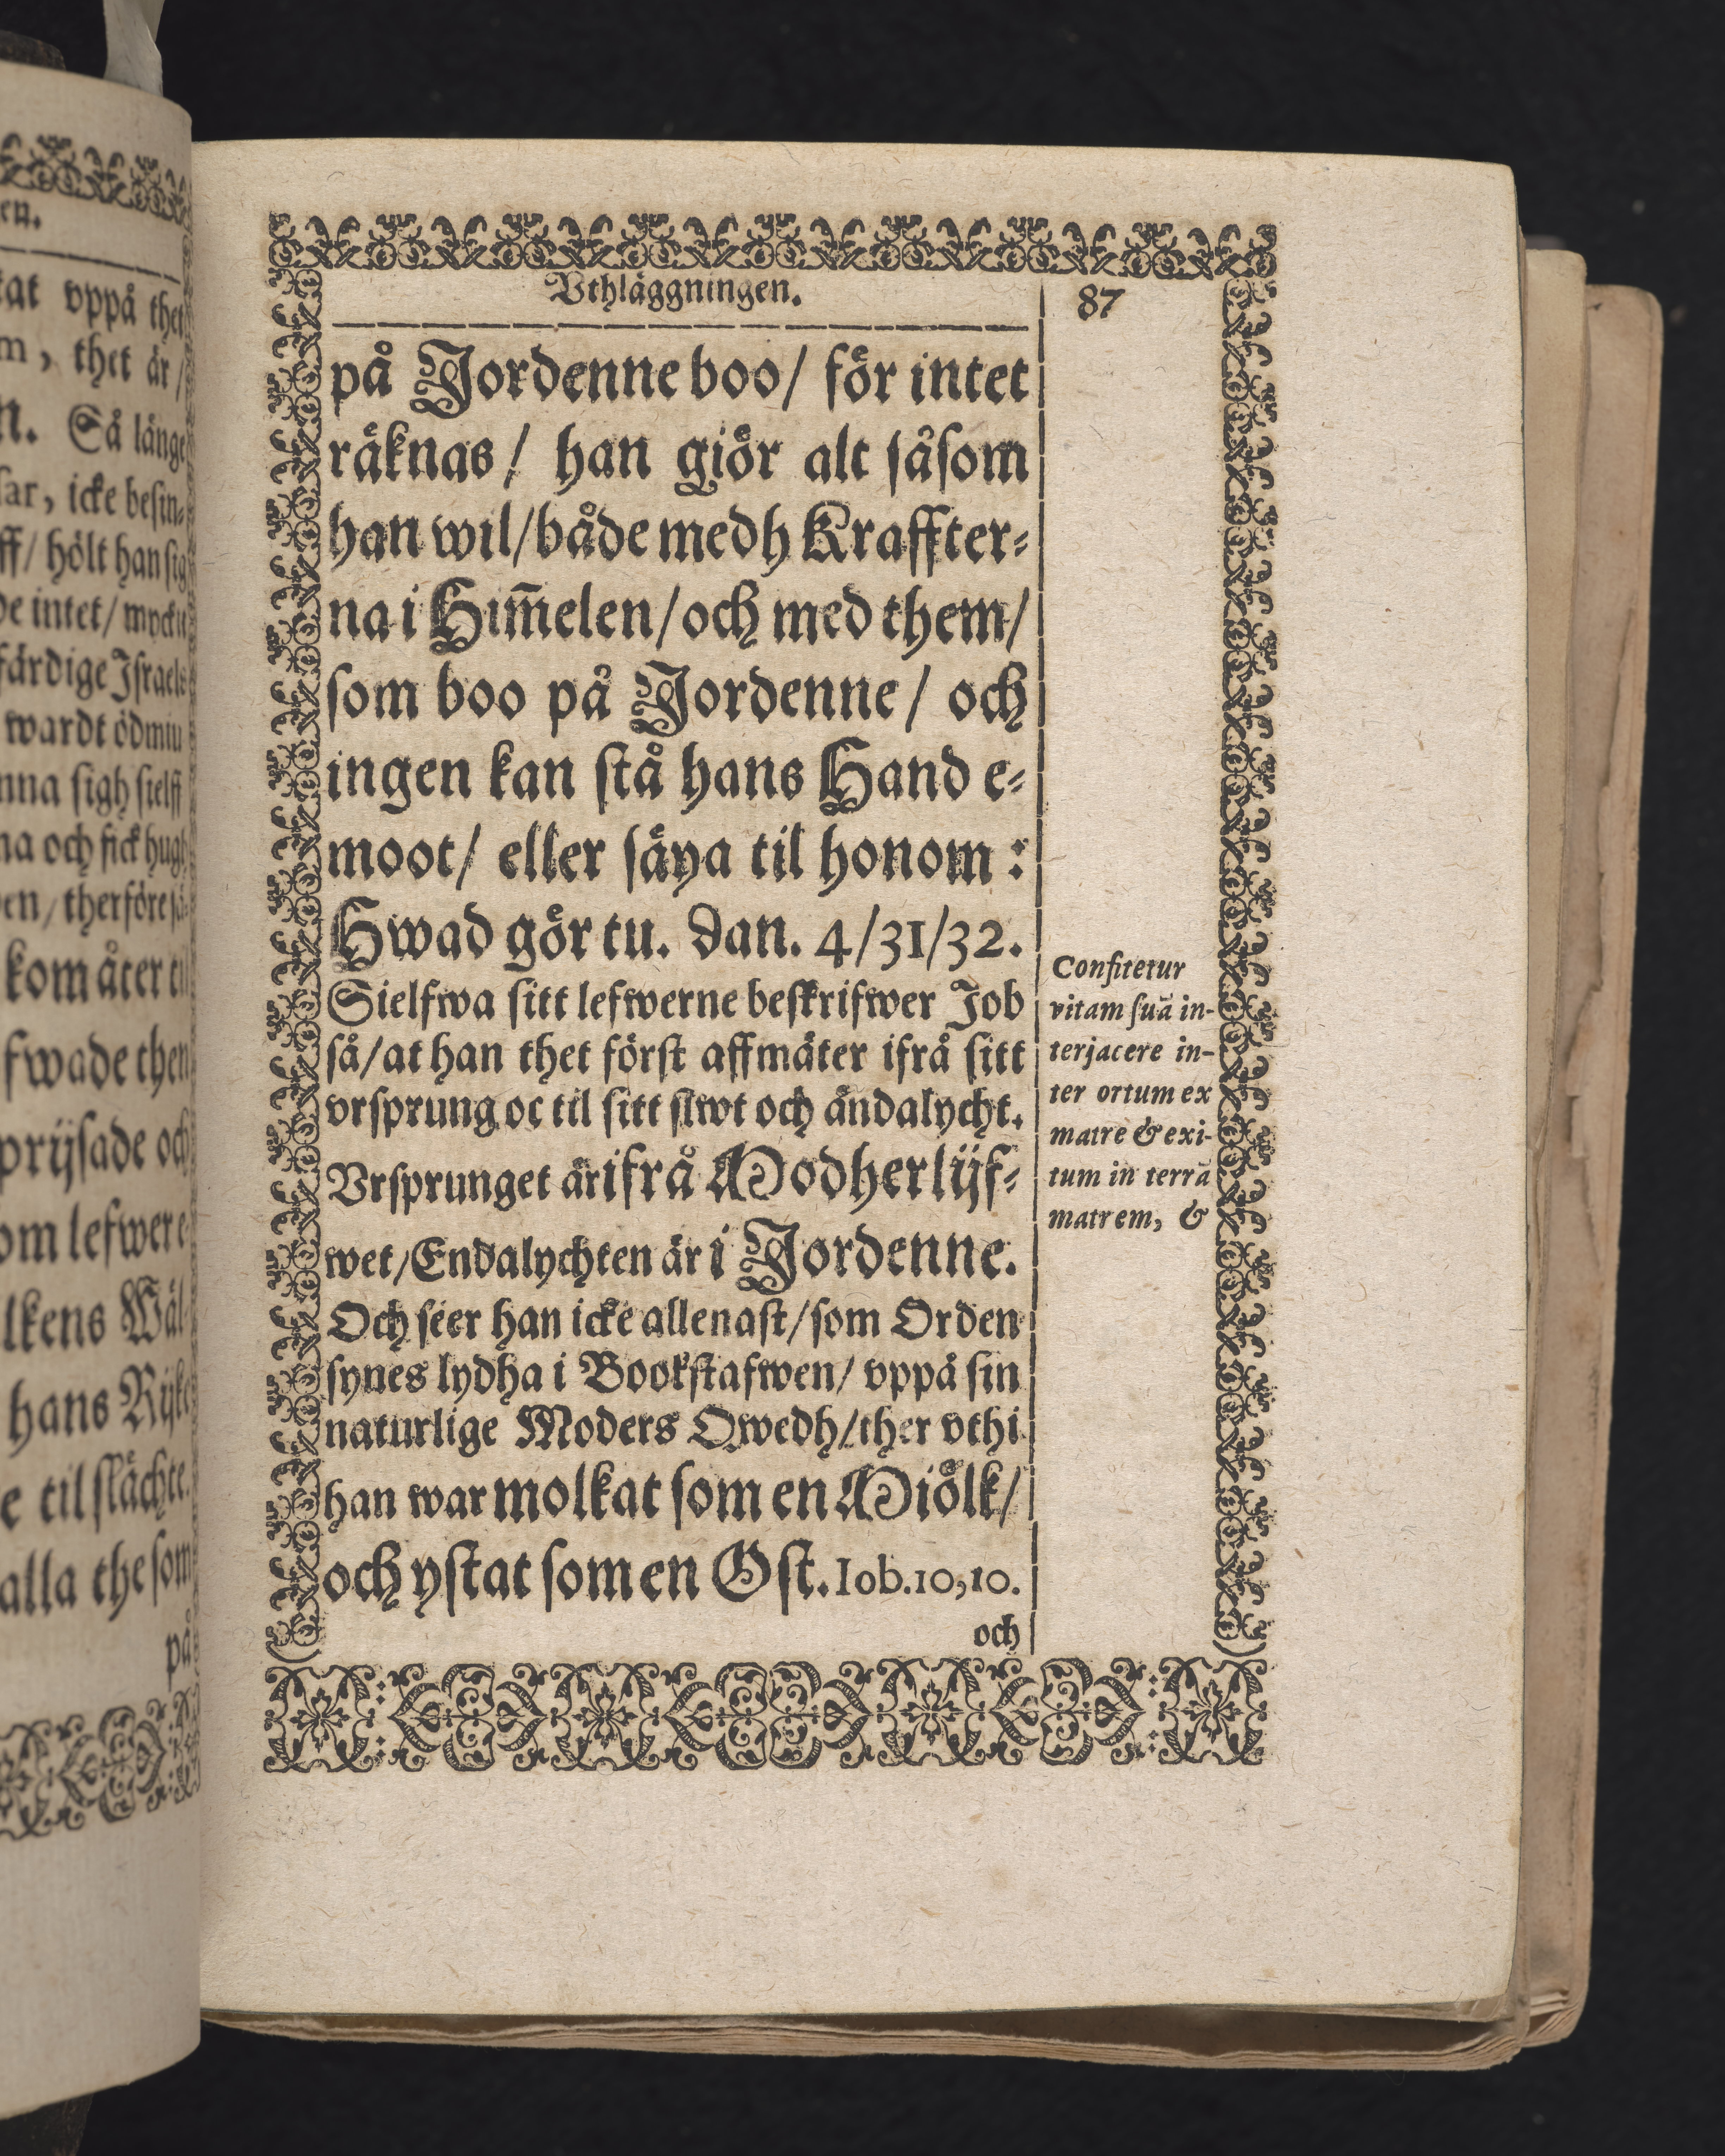 en.
kat vppå thet
m, thet är/
n. Så länge
sar, icke besin⸗
ff/ hölt han sig
de intet/ myckit
färdige Israels
wardt ödmiu
nna sigh sielff
na och fick hugh
en, therföre så⸗
kom åter til
fwade then
prijsade och
om lefwer e⸗
lkens Wäl⸗
hans Rijke
e til slächte.
alla the som
på
Vthläggningen.
87
på Jordenne boo/ för intet
räknas/ han giör alt såsom
han wil/både medh Kraffter⸗
na i Him̃elen/och med them/
som boo på Jordenne/ och
ingen kan stå hans Hand e⸗
moot/ eller säya til honom:
Hwad gör tu. Dan. 4/31/32.
Sielfwa sitt lefwerne beskrifwer Job
så/at han thet först affmäter ifrå sitt
vrsprung oc til sitt slwt och ändalycht.
Vrsprunget är ifrå Modherlijf⸗
wet/Endalychten är i Jordenne.
Och seer han icke allenast/som Orden
synes lydha i Bookstafwen/ vppå sin
naturlige Moders Qwedh/ther vthi
han war molkat som en Miölk/
och ystat som en Ost. Iob.10,10.
och
Confitetur
vitam suā in-
terjacere in-
ter ortum ex
matre & exi-
tum in terrā
matrem, &